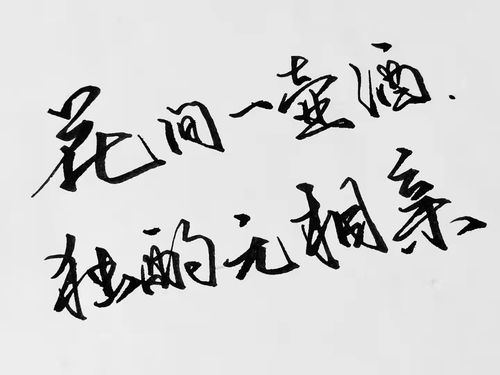 花间一壶酒.
独酌无相亲